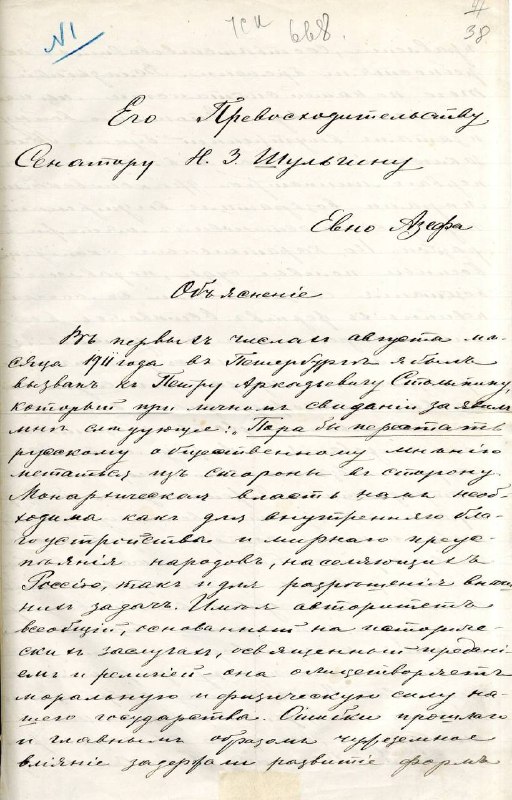 №1
ЧСК 668.
38
Его Превосходительству
Сенатору Н. З. Шульгину
Евно Азефа
Объясненіе
Въ первыхъ числахъ августа мѣ-
сяца 1911 года въ Петербургѣ я былъ
вызванъ къ Петру Аркадьевичу Столыпину,
который при личномъ свиданіи заявилъ
мнѣ слѣдующее: „Пора бы перестать
русскому общественному мнѣнію
метаться изъ стороны въ сторону.
Монархическая власть намъ необ-
ходима какъ для внутренняго бла-
гоустройства и мирнаго преус-
пѣянія народовъ, населяющихъ
Россію, такъ и для разрѣшенія внѣш
нихъ задачъ. Имѣя авторитетъ
всеобщій, основанный на историче-
скихъ заслугахъ, освященный предані-
емъ и религіей – она олицетворяетъ
моральную и физическую силу на-
шего государства. Ошибки прошлаго
и главнымъ образомъ чужеземное
вліяніе задержали развитіе формъ